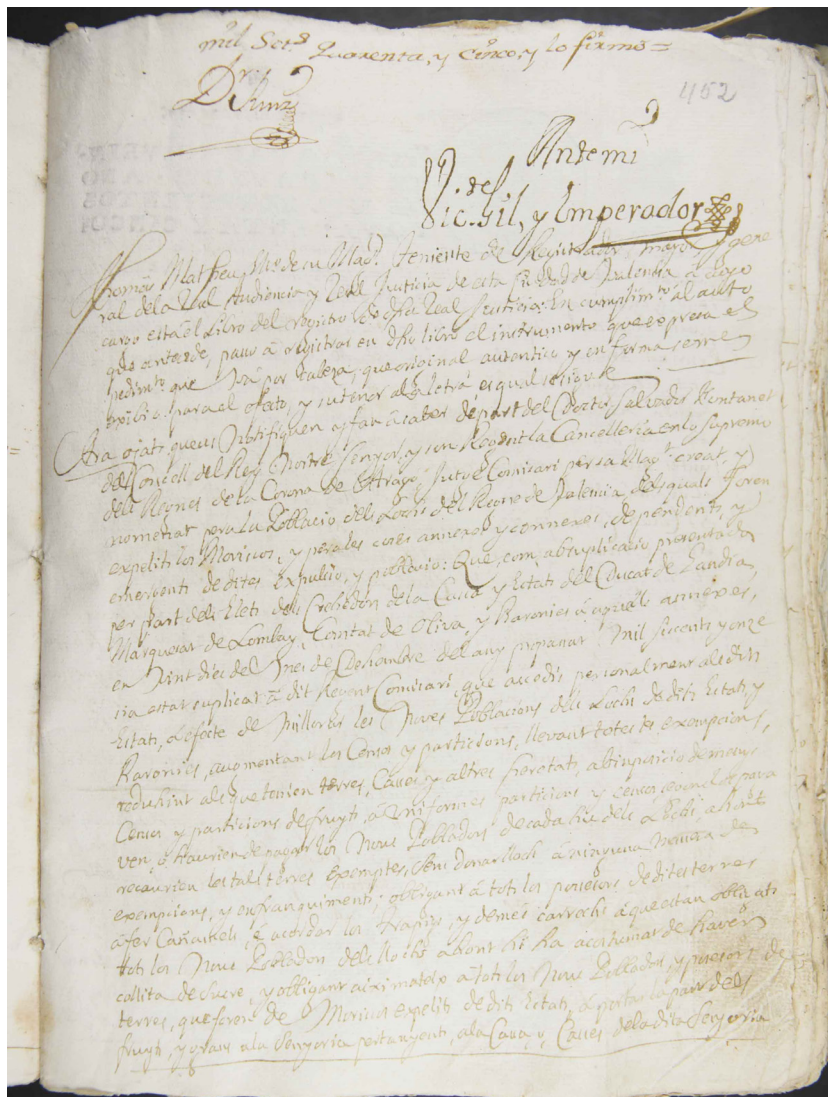 mil Set.s Quarenta, y cinco, y lo firmò =
D.r
452
Ante mi
V. de
Lic. Gil, y Emperador
Thomàs Matheu ss.no de su Mag.d Theniente de Registrador mayor, y gene
ral de la Real Audiencia y Real Justicia de esta Ciudad de Valencia à cuyo
cargo està el Libro del registro de dha Real Justicia: En cumplim.to al auto
que antecede, paso à registrar en dho libro el instrumento que expresa el
pedim.to que và por cabeza, que original autentico y en forma se me
exhibiò para el efecto, y su tenor a la letra es qual se sigue
Ara ojats queus notifiquen y fan à saber de part del Doctor Salvador Fontanet
del Concell del Rey Nostre Senyor, y son Regent la Cancelleria en lo Supremo
dels Regnes de la Corona de Aragò, Jutge Comisari per sa Mag.t creat, y
nomenat pera la Poblacio dels Lochs del Regne de Valencia, dels quals foren
expelits los Moriscos, y pera les coses annexes y connexes, dependents, y
emergents de dites Expulsio, y poblacio: Que, com ab suplicacio presentada
per part dels Elets dels Crehedors de la Casa y Estats del Ducat de Gandia,
Marquesat de Lombay, Comtat de Oliva, y Baronies à aquells annexes,
en Vint dies del Mes de Dehembre del any propasat Mil siscents y onze
sia estat suplicat à dit Regent Comisari, que accedis personalment als dits
Estats, à efecte de millorar les Noves Poblacions dels Lochs de dits Estats, y
Baronies, augmentant los Censos y particions, llevant totes les exempcions,
reduhint als que tenien terres, Cases, y altres heretats, ab imposicio de menys
Censos y particions de fruyts, à uniformes particions y censos,
ven, ò haurien de pagar los Nous Pobladors de cada hu dels Lochs, a hont
recaurien les tals terres exemptes, sens donar lloch à ninguna manera de
exempcions, y enfranquiments; obligant à tots los posesors de dites terres
à fer Cañamels, è acordar los Trapigs, y demès carrechs à que estan obligats
tots los Nous Pobladors dels llochs a hont hi ha acostumat de haver
collita de sucre, y obligant aixi mateix à tots los Nous Pobladors, y posesors de
terres, que foren de Moriscos expelits de dits Estats, à portar la part dels
fruyts, y grans a la Senyoria pertanyents, a la Casa, ò Cases de la dita Senyoria